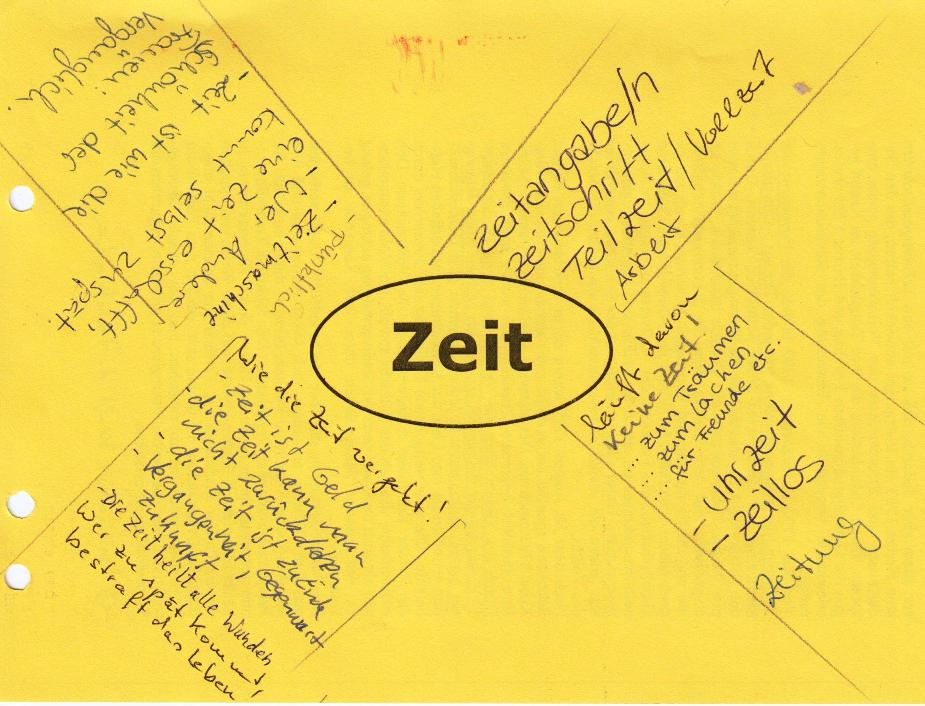 Zeit
- pünktlich
- Zeitmaschine
- Wer Andere
eine Zeit
kommt selbst zu spät.
- Zeit ist wie die
Schönheit der
Frauen:
Vergänglich.
zeitangabe/n
zeitschrift
Teilzeit / Vollzeit
Arbeit
läuft davon
Keine Zeit!
... zum Träumen
... zum Lachen,
... für Freunde etc.
- Uhrzeit
- zeitlos
Zeitung
Wie die Zeit vergeht!
- Zeit ist Geld
- die Zeit kann man
nicht zurückdrehen
- die Zeit ist zu Ende
- Vergangenheit, Gegenwart
Zukunft
- Die Zeit heilt alle Wunden
Wer zu spät kommt,
bestraft das Leben